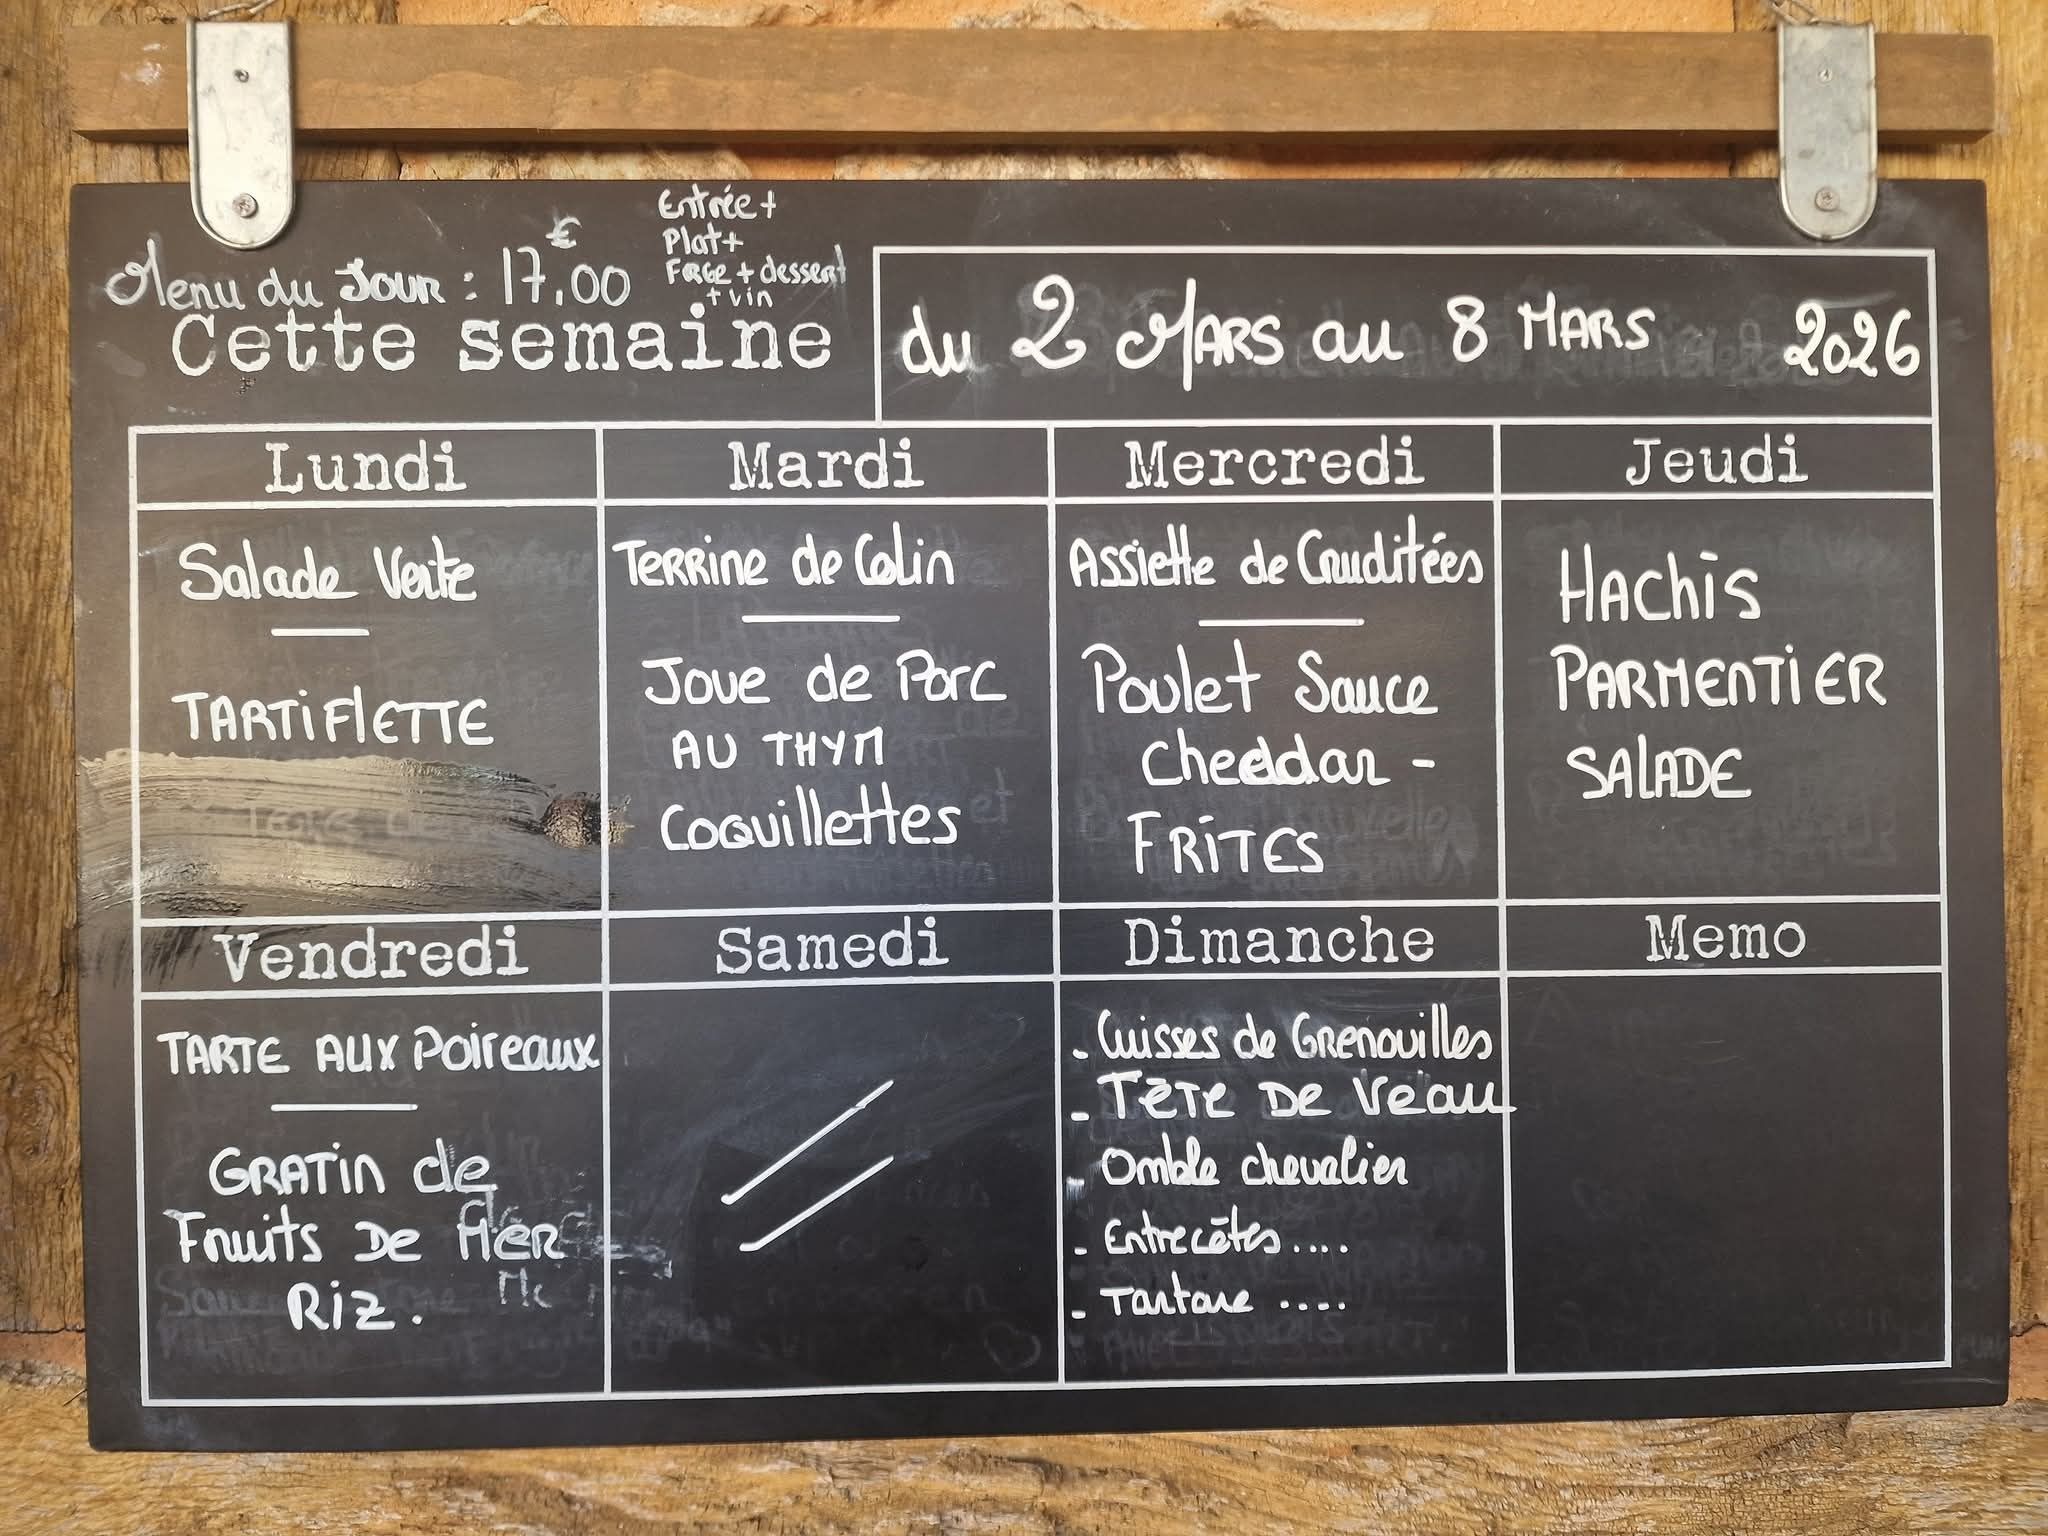 Menu du Jour : 17,00 €
Entrée +
Plat +
Froge + dessert
+ vin
Cette semaine
du 2 Mars au 8 Mars 2026
Lundi
Salade Verte
TARTIFLETTE
Mardi
Terrine de Colin
Joue de Porc
AU THYM
Coquillettes
Mercredi
Assiette de Cruditées
Poulet Sauce
Cheddar -
FRITES
Jeudi
HACHIS
PARMENTIER
SALADE
Vendredi
TARTE AUX Poireaux
GRATIN de
Fruits DE MER
RIZ.
Samedi
Dimanche
- Cuisses de Grenouilles
- TÊTE DE Veau
- Omble chevalier
- Entrecôtes ....
- Tartare ....
Memo